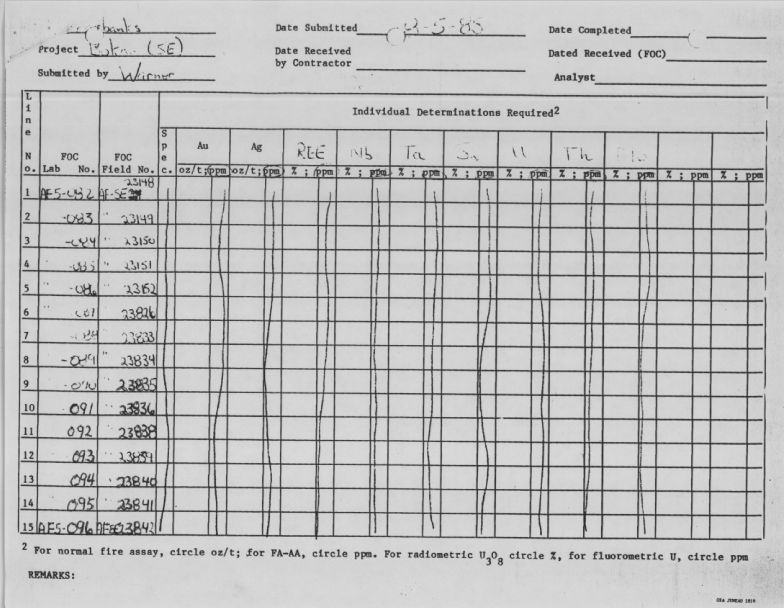 Date Submitted 2-5-85 Date Completed
Project (SE) Date Received Dated Received (FOC)
by Contractor
Submitted by Warner Analyst
Individual Determinations Required2
Line No. FOC Lab No. FOC Field No. Spec. Au Ag REE Nb Ta Sn U Th
oz/t;ppm oz/t;ppm % ; ppm % ; ppm % ; ppm % ; ppm % ; ppm % ; ppm % ; ppm % ; ppm % ; ppm
23148
1 AF5-082 AF-SE
2 -083 " 23149
3 -084 " 23150
4 -085 " 23151
5 " -086 " 23152
6 " 087 23826
7 23833
8 -089 " 23834
9 -090 23835
10 091 23836
11 092 23838
12 093 23839
13 094 23840
14 095 23841
15 AF5-096 AFSE23842
2 For normal fire assay, circle oz/t; for FA-AA, circle ppm. For radiometric U3O8 circle %, for fluorometric U, circle ppm
REMARKS: